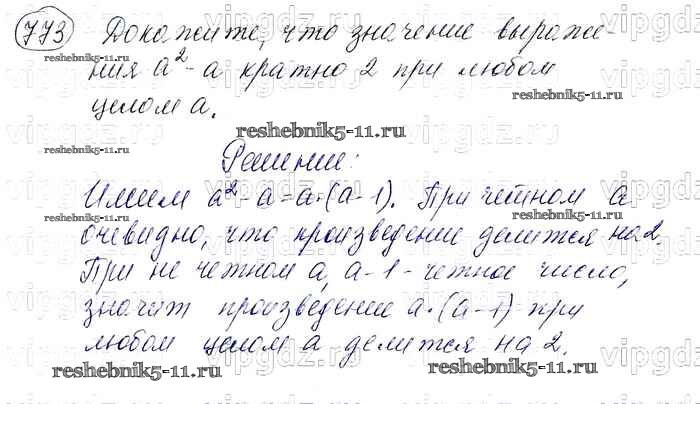 773 Докажите, что значение выраже-
ния a² - a кратно 2 при любом
целом a.
reshebnik5-11.ru
reshebnik5-11.ru
reshebnik5-11.ru
reshebnik5-11.ru
Решение:
Имеем a² - a = a·(a - 1). При четном a
reshebnik5-11.ru
reshebnik5-11.ru
очевидно, что произведение делится на 2.
При не четном a, a - 1 - четное число,
значит произведение a·(a - 1) при
любом целом a делится на 2.
reshebnik5-11.ru
reshebnik5-11.ru
vipgdz.ru